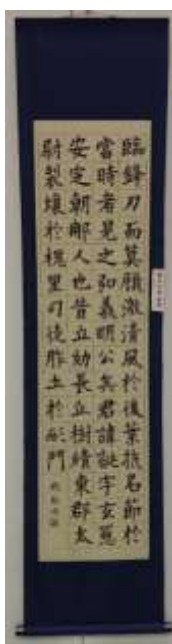 臨鋒刃而莫顧激清風於後葉抗名節於
當時者見之弘義明公矣君諱誕字玄憲
安定朝那人也昔立効長丘樹績東郡太
尉裂壤於槐里司徒胙土於耏門